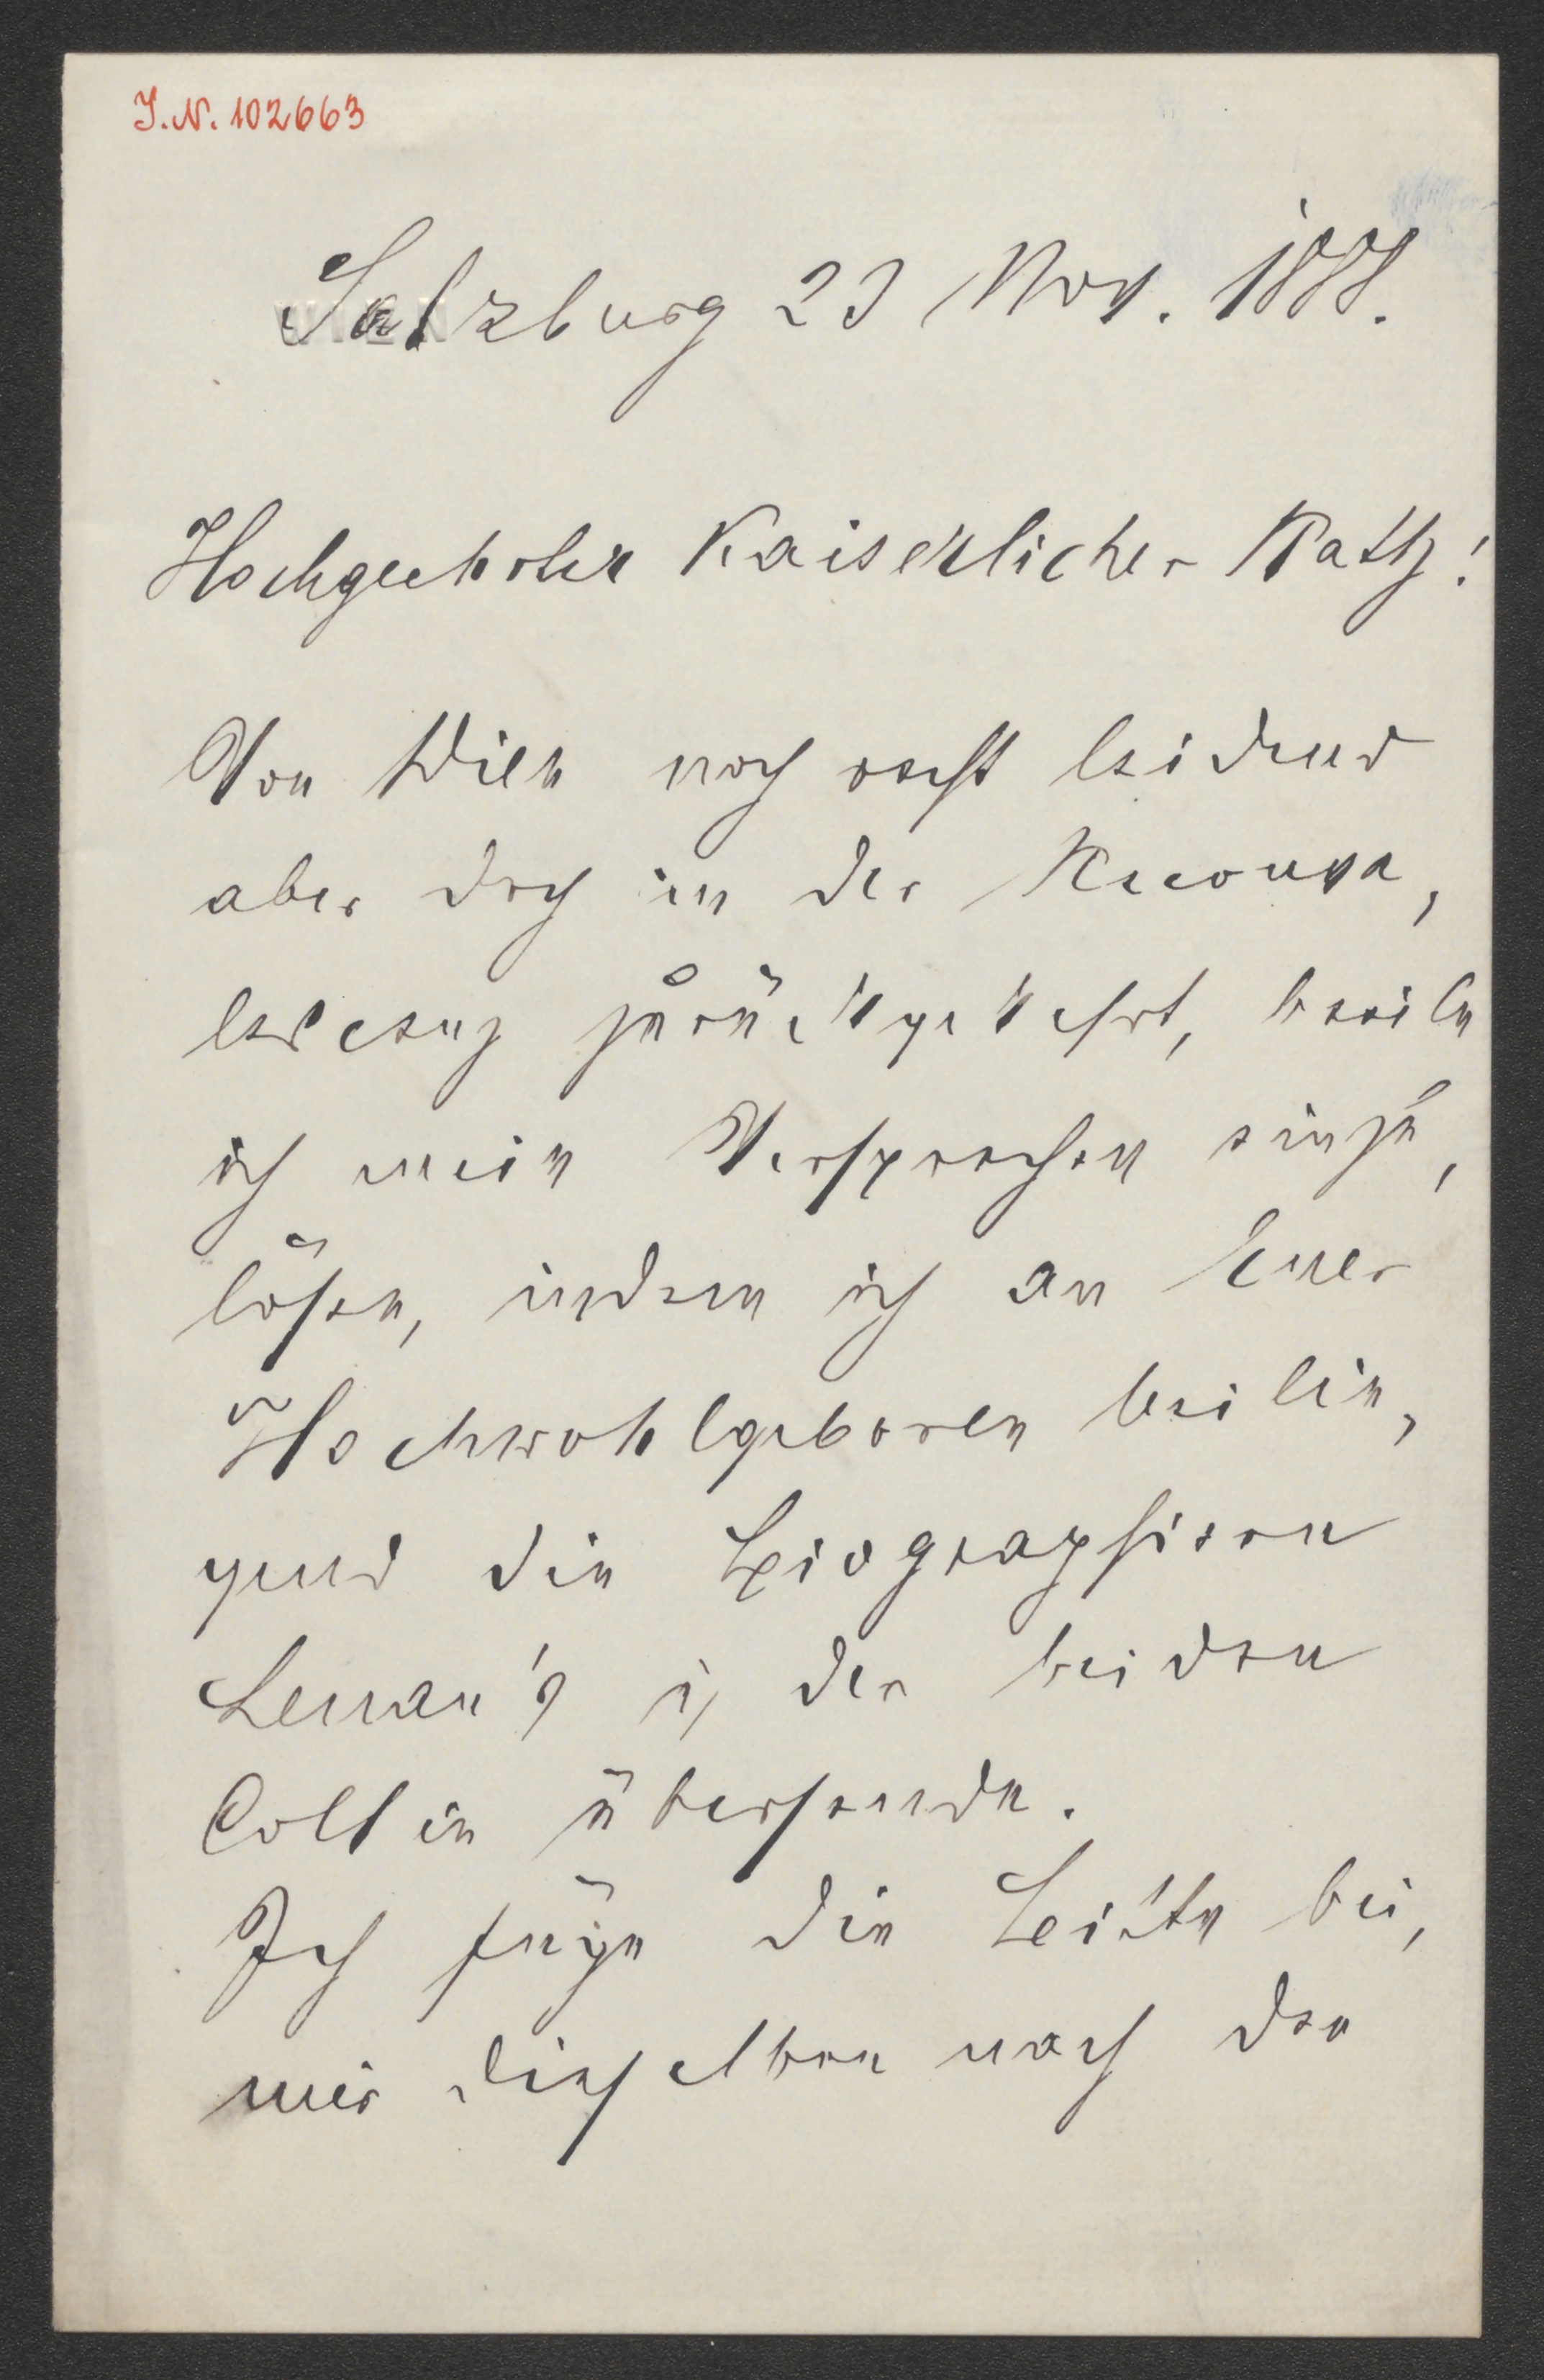 J.N. 102663
Salzburg 23 Nov. 1888.
Hochgeehrter Kaiserlicher Rath!
Von Wien noch recht leidend
aber doch in der Reconva,
lescenz zurückgekehrt, beeile
ich mein Versprechen einzu,
lösen, indem ich an Euer
Hochwohlgeboren beilie,
gend die Biographieen
Lenau's u der beiden
Collin übersende.
Ich füge die Bitte bei,
mir dieselben nach den